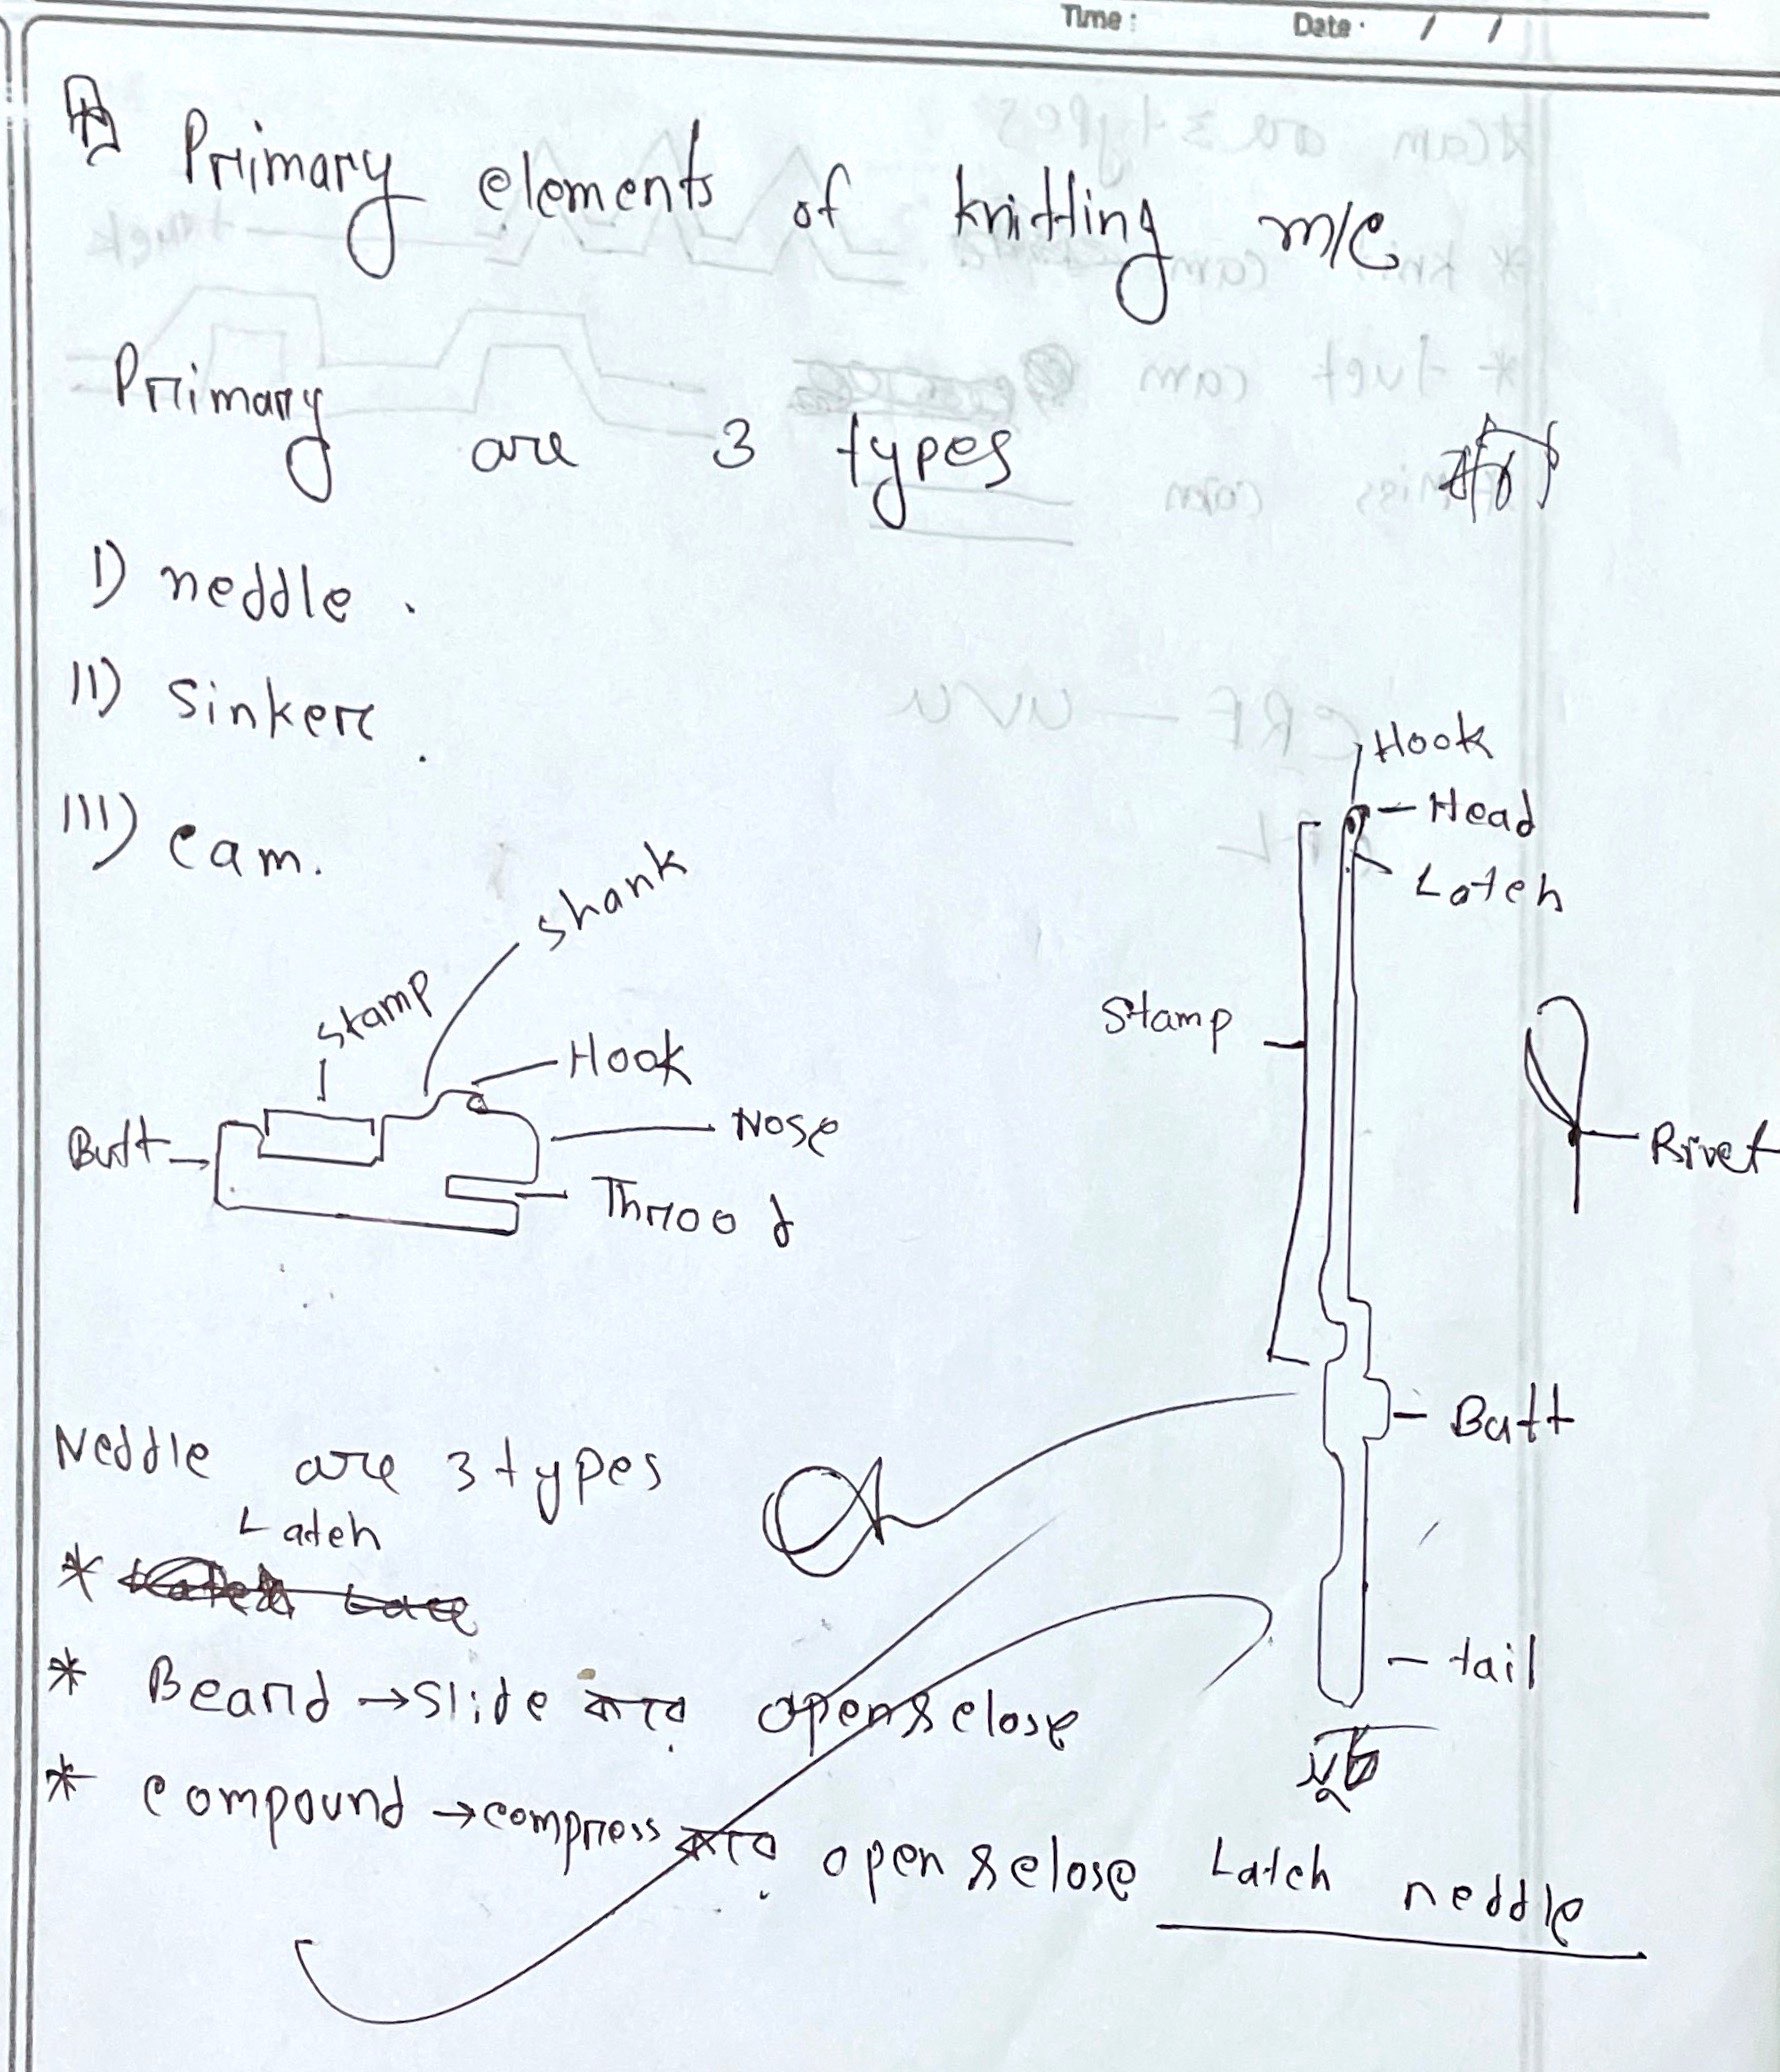 Time :
Date · / /
Primary elements of knitting m/c
Primary are 3 types
I) neddle .
II) Sinker .
III) Cam.
shank
stamp
Hook
Butt
Nose
Throod
Hook
Head
Latch
Stamp
Rivet
Butt
tail
Neddle are 3 types
Latch
*
* Beard → slide করে open & close
* compound → compress করে open & close
Latch neddle